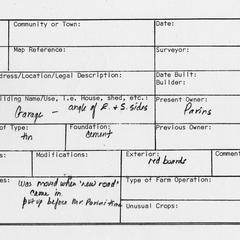 Community or Town: Date:
Map Reference: Surveyor:
dress/Location/Legal Description: Date Built:
Builder:
ilding Name/Use, i.e. House, shed, etc.: Present Owner:
Garage - angle of E. + S. sides Pavins
of Type: Foundation: Previous Owner:
tin cement
es: Modifications: Exterior: Comment
red boards
es: Type of Farm Operation:
Was moved when 'new road'
came in
put up before Mr. time Unusual Crops: